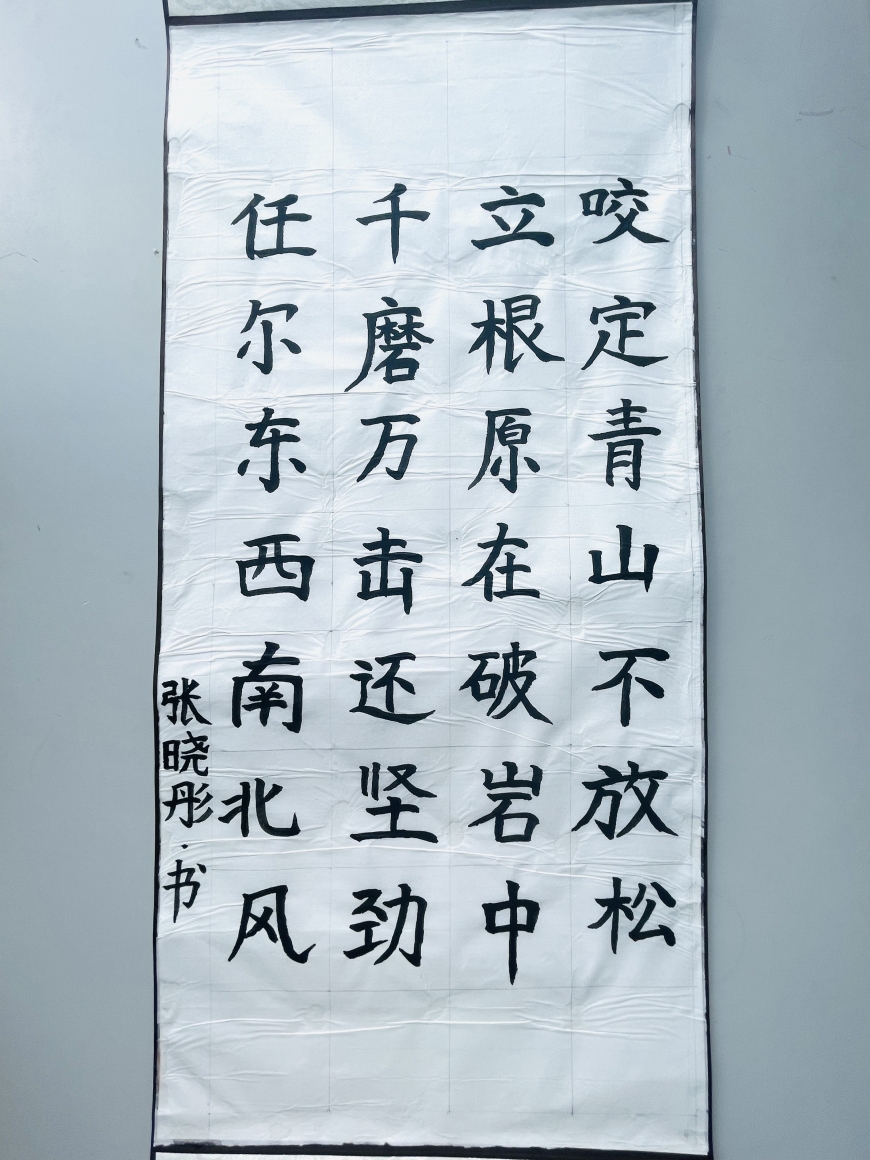 咬定青山不放松
立根原在破岩中
千磨万击还坚劲
任尔东西南北风
张晓彤·书